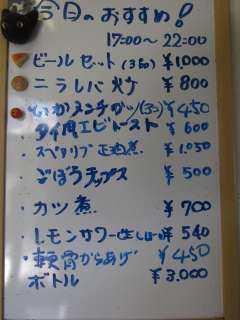 今日のおすすめ!
17:00～22:00
ビールセット(3品) ¥1,000
ニラレバ炒 ¥800
メンチカツ ¥450
エビトースト ¥600
スペアリブ 正油煮 ¥1,050
ごぼうチップス ¥500
カツ煮 ¥700
レモンサワー ¥540
軟骨からあげ ¥450
ボトル ¥3,000